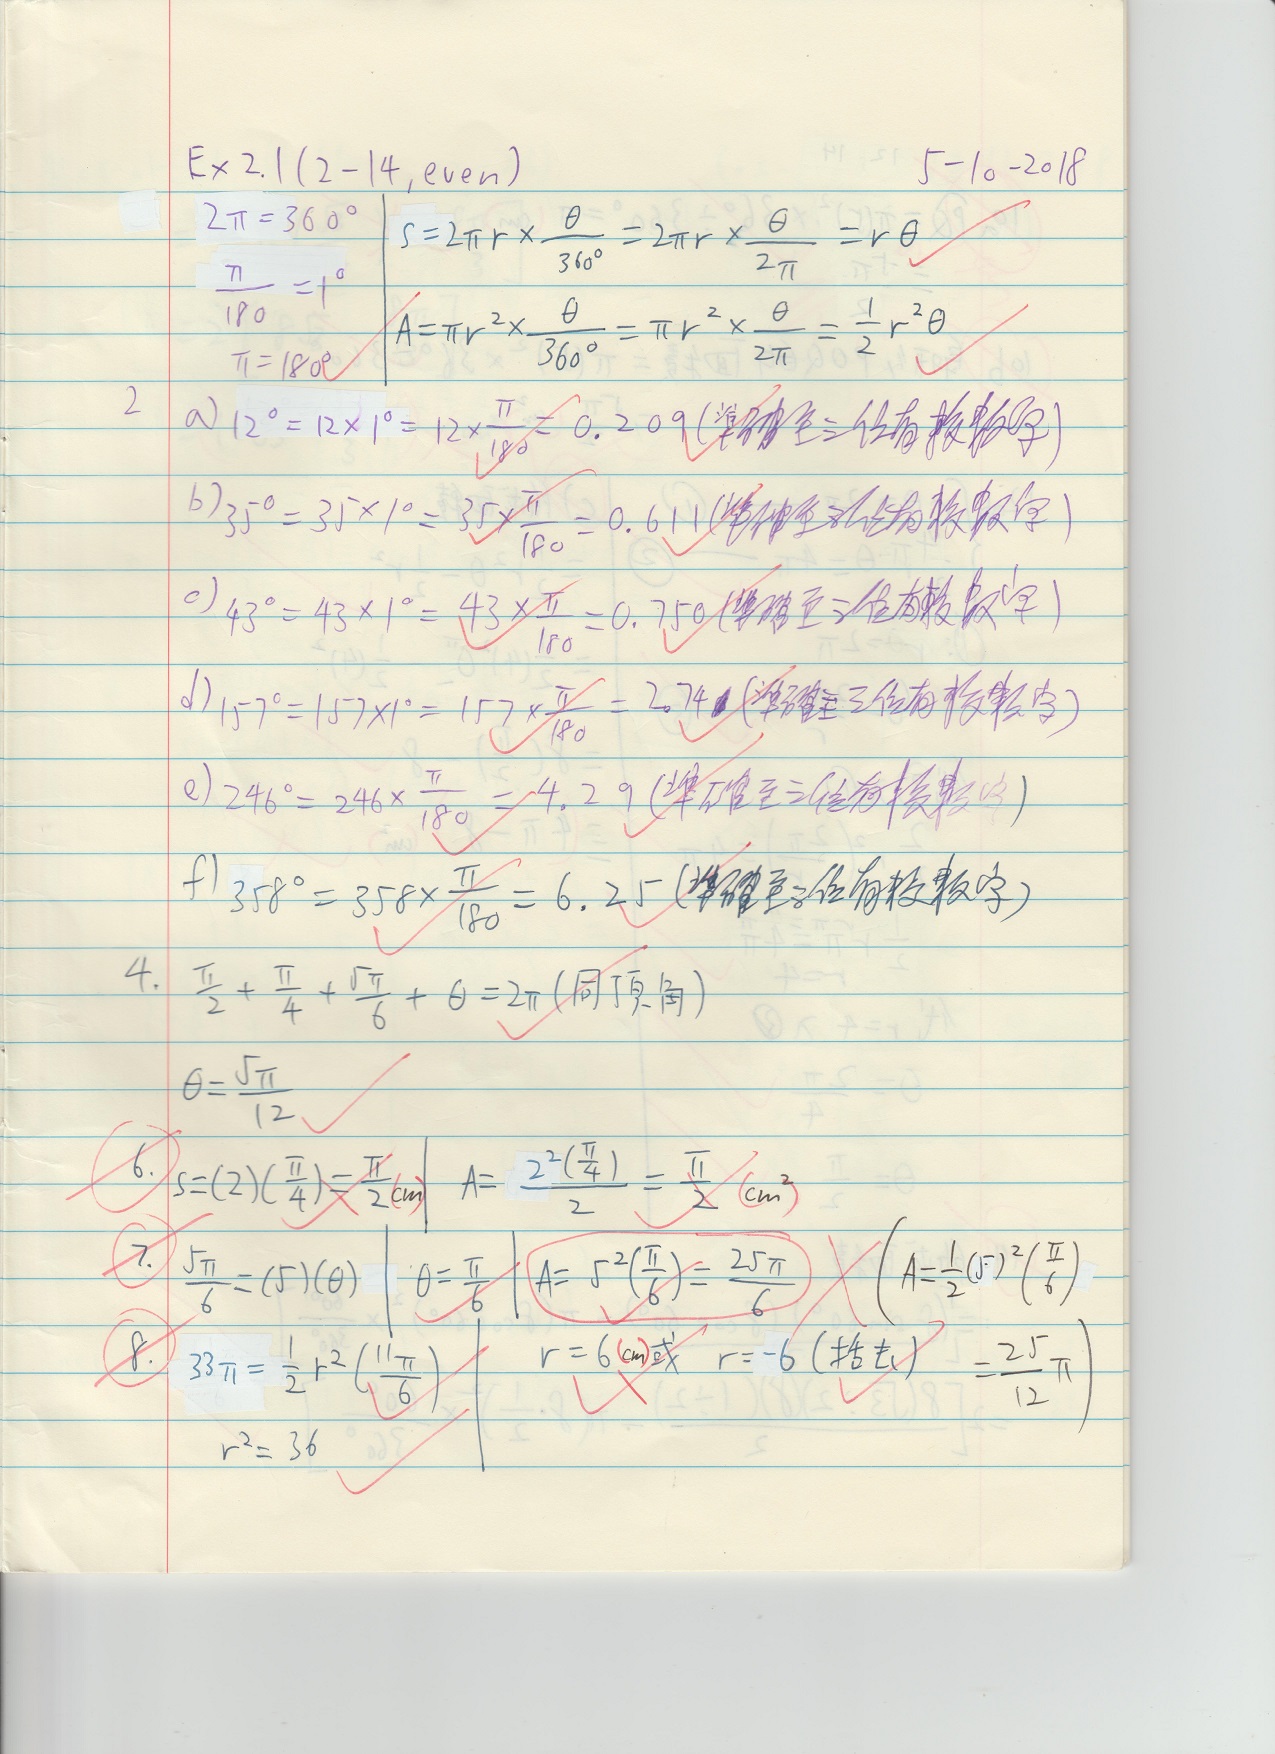 Ex 2.1 (2-14, even) 5-10-2018
2π = 360°
π/180 = 1°
π = 180°
S = 2πr × θ/360° = 2πr × θ/2π = rθ
A = πr² × θ/360° = πr² × θ/2π = 1/2 r²θ
2 a) 12° = 12 × 1° = 12 × π/180 = 0.209 (準確至三位有效數字)
b) 35° = 35 × 1° = 35 × π/180 = 0.611 (準確至三位有效數字)
c) 43° = 43 × 1° = 43 × π/180 = 0.750 (準確至三位有效數字)
d) 157° = 157 × 1° = 157 × π/180 = 2.74 (準確至三位有效數字)
e) 246° = 246 × π/180 = 4.29 (準確至三位有效數字)
f) 358° = 358 × π/180 = 6.25 (準確至三位有效數字)
4. π/2 + π/4 + 5π/6 + θ = 2π (同頂角)
θ = 5π/12
6. S = (2)(π/4) = π/2 (cm) A = 2²(π/4)/2 = π/2 (cm²)
7. 5π/6 = (5)(θ) θ = π/6 A = 5²(π/6) = 25π/6 (A = 1/2 (5)² (π/6)
= 25/12 π)
8. 33π = 1/2 r² (11π/6) r = 6 (cm) 或 r = -6 (捨去)
r² = 36